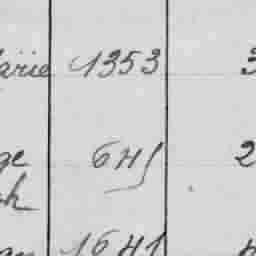 arie 1353 3
ge 645 2
ch
1641